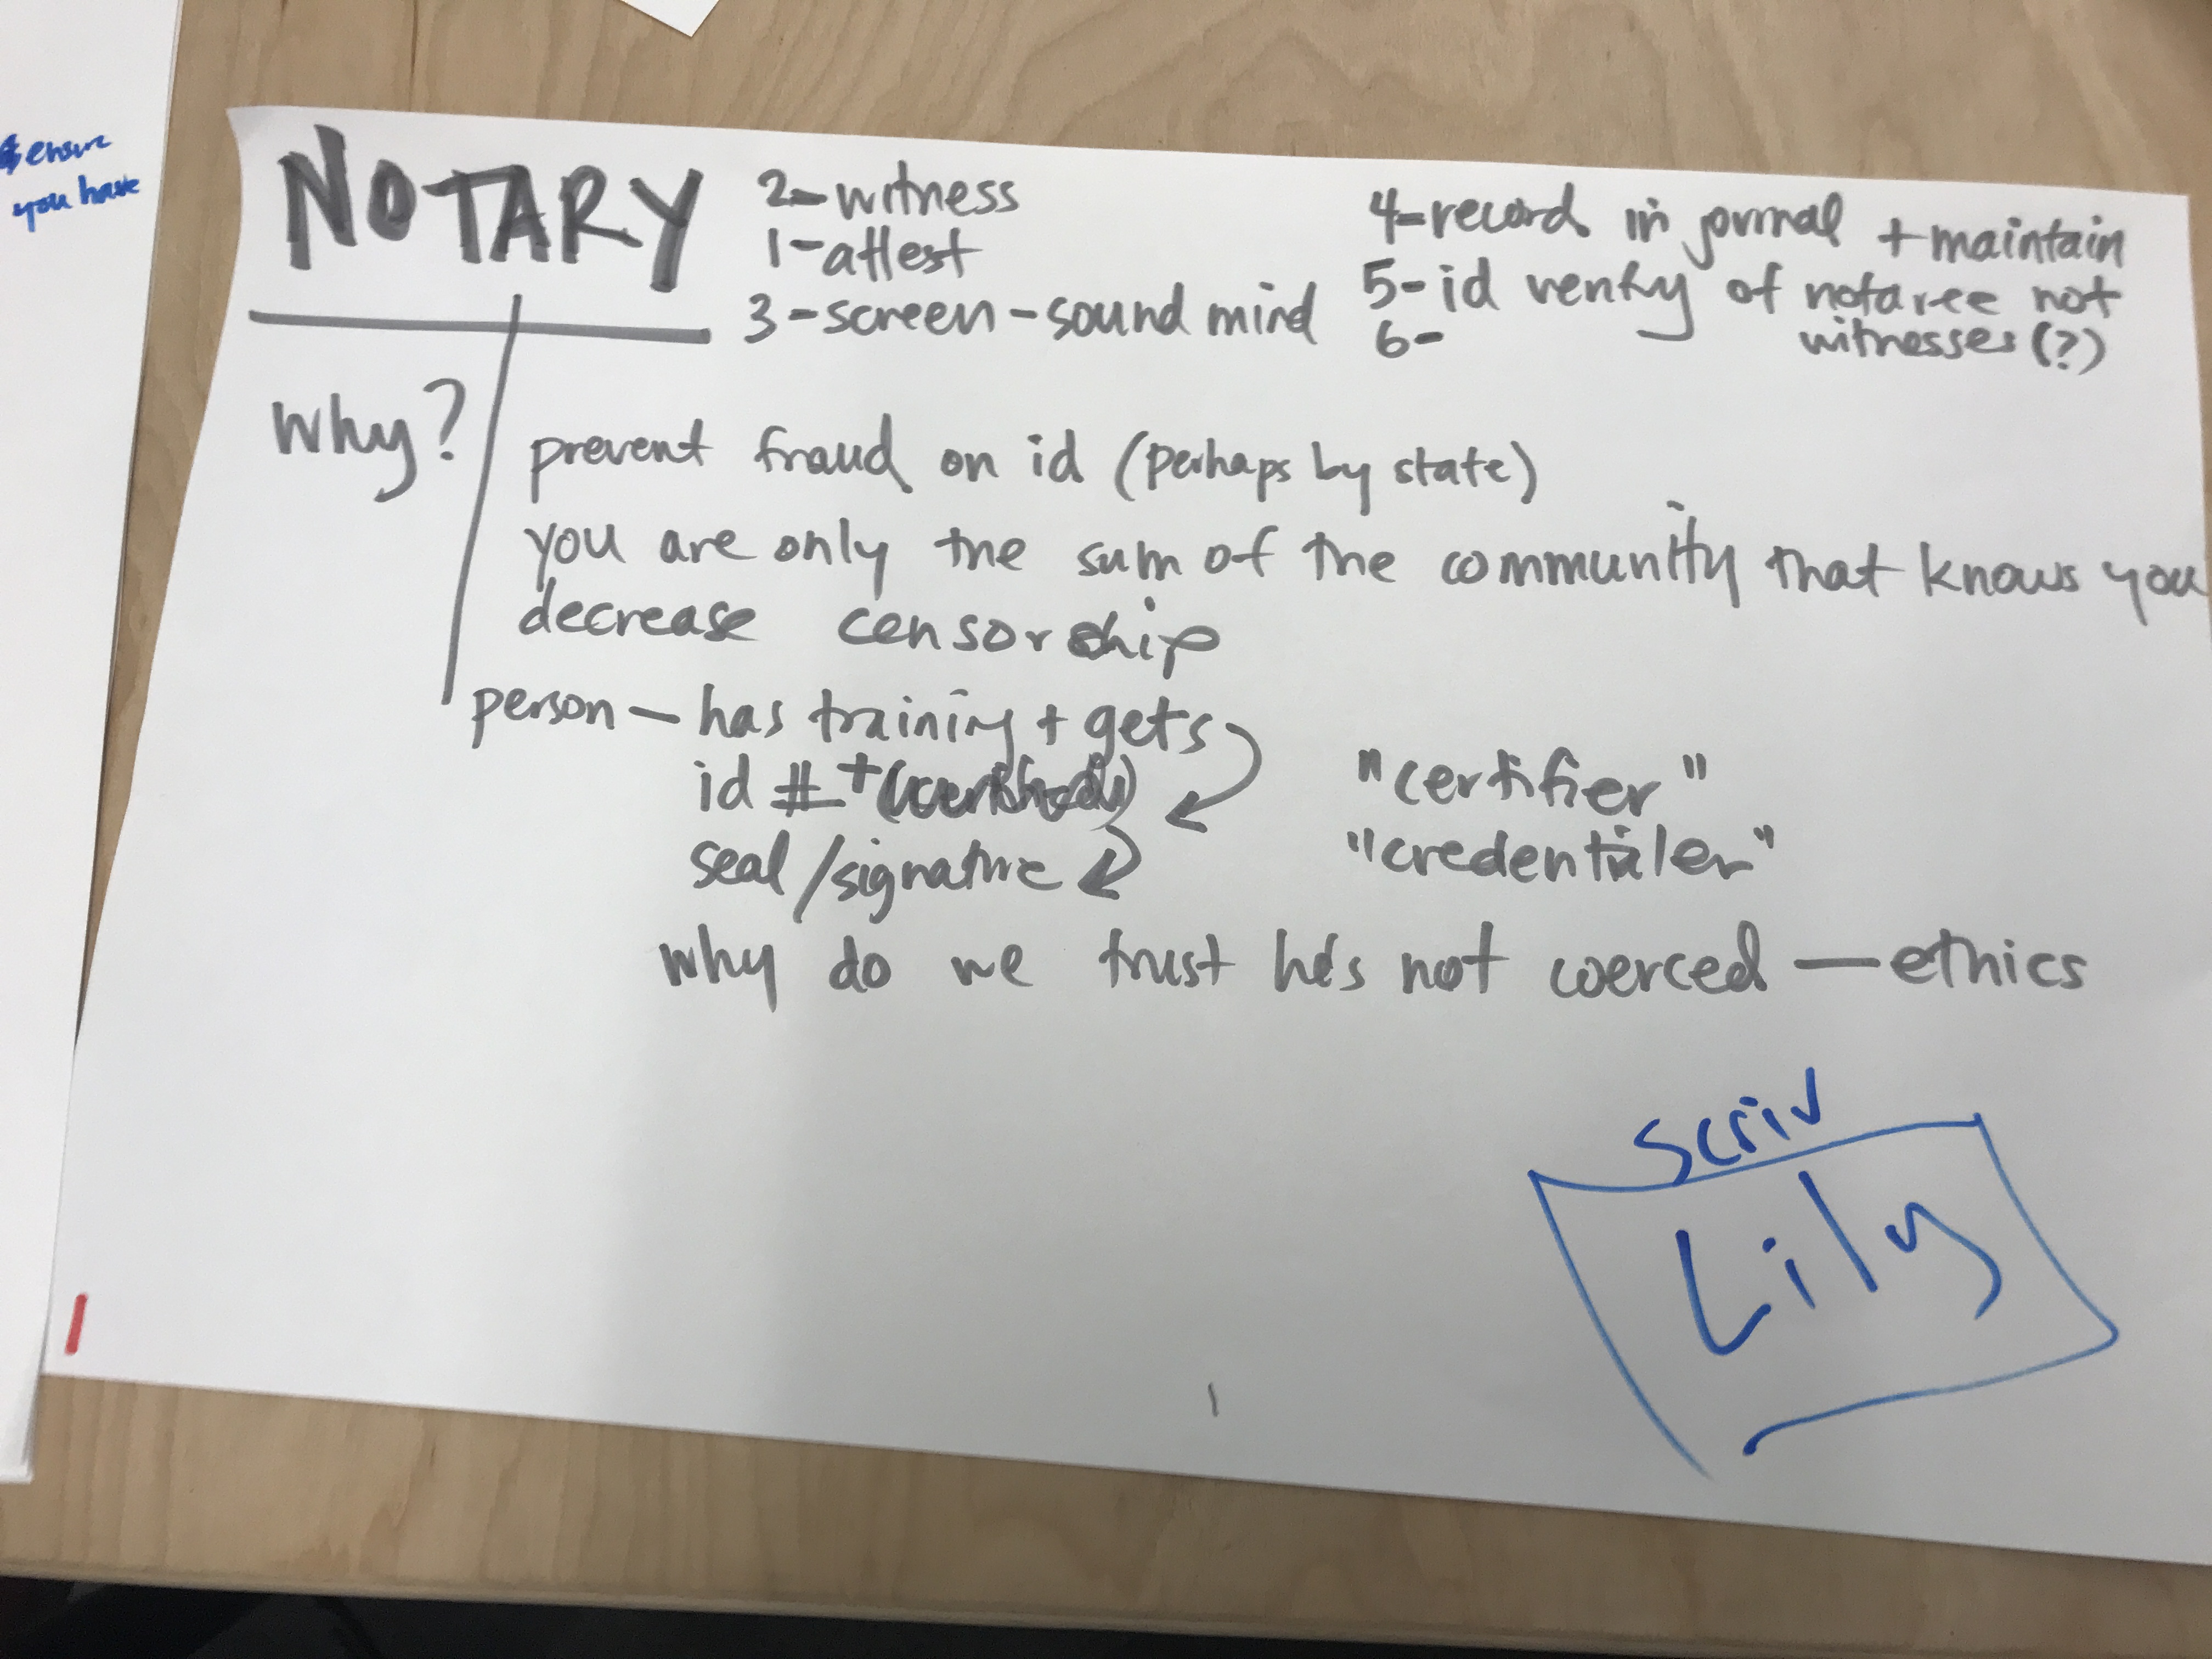 & ensure
you have
NOTARY
2-witness
1-attest
3-screen-sound mind
4-record in jornal + maintain
5-id verify of notaree not
witnesses (?)
6-
Why?
prevent fraud on id (perhaps by state)
you are only the sum of the community that knows you
decrease censorship
person - has training + gets
id # +
seal/signature
"certifier"
"credentialer"
why do we trust he's not coerced - ethics
Scriv
Lily
1
1